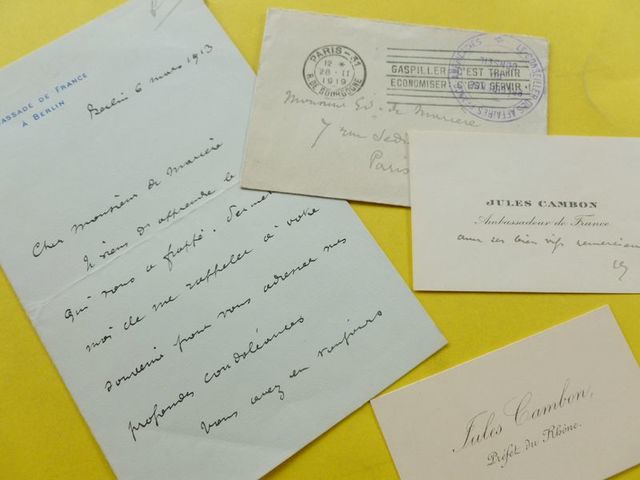 BASSADE DE FRANCE
A BERLIN
Berlin 6 mars 1913
Cher Monsieur de
Je viens d'apprendre le
qui vous a frappé. Permet
moi de me rappeler à votre
souvenir pour vous adresser mes
profondes condoléances
Vous avez eu toujours
PARIS - 31
12 *
28 - II
1919
R. DE BOURGOGNE
GASPILLER C'EST TRAHIR
ECONOMISER C'EST SERVIR
Monsieur Ed. de
7 rue
Paris
JULES CAMBON
Ambassadeur de France
avec ses bien vifs
Jules Cambon,
Préfet du Rhône.